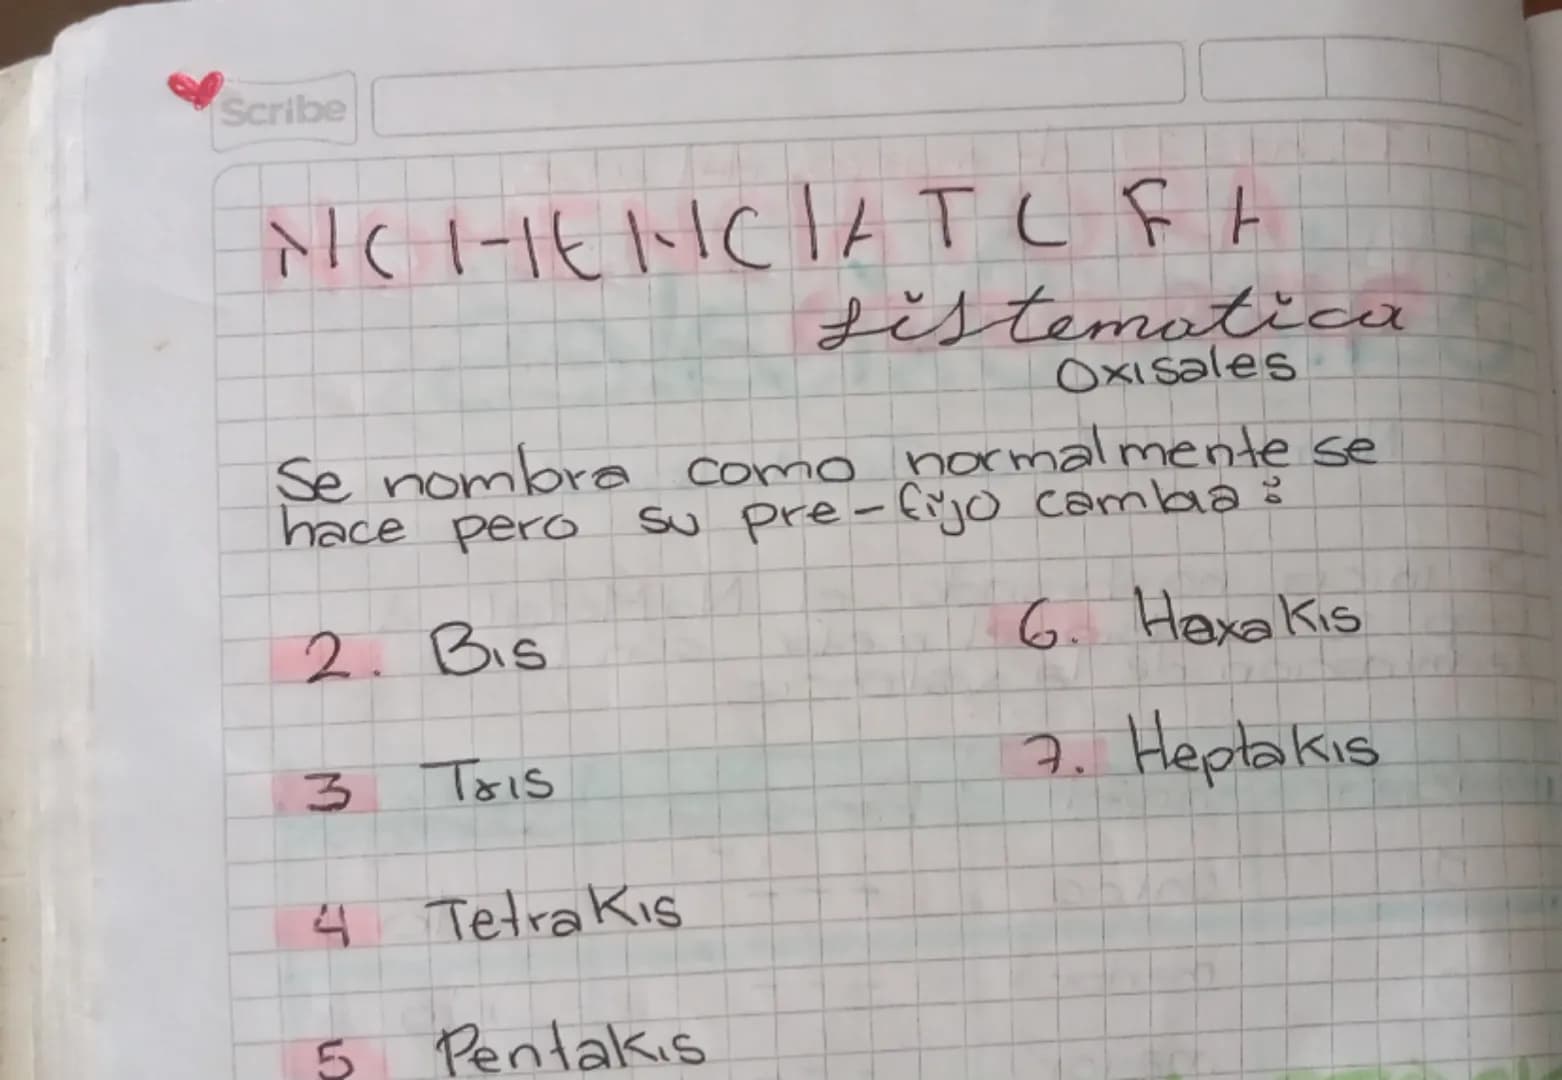 Scribe
NOMENCLATURA
sistematica
Oxisales
Se nombra como normalmente se
hace pero su pre-fijo cambia:
2. Bis
3 Tris
4 Tetrakis
5 Pentakis
6. Hexakis
7. Heptakis